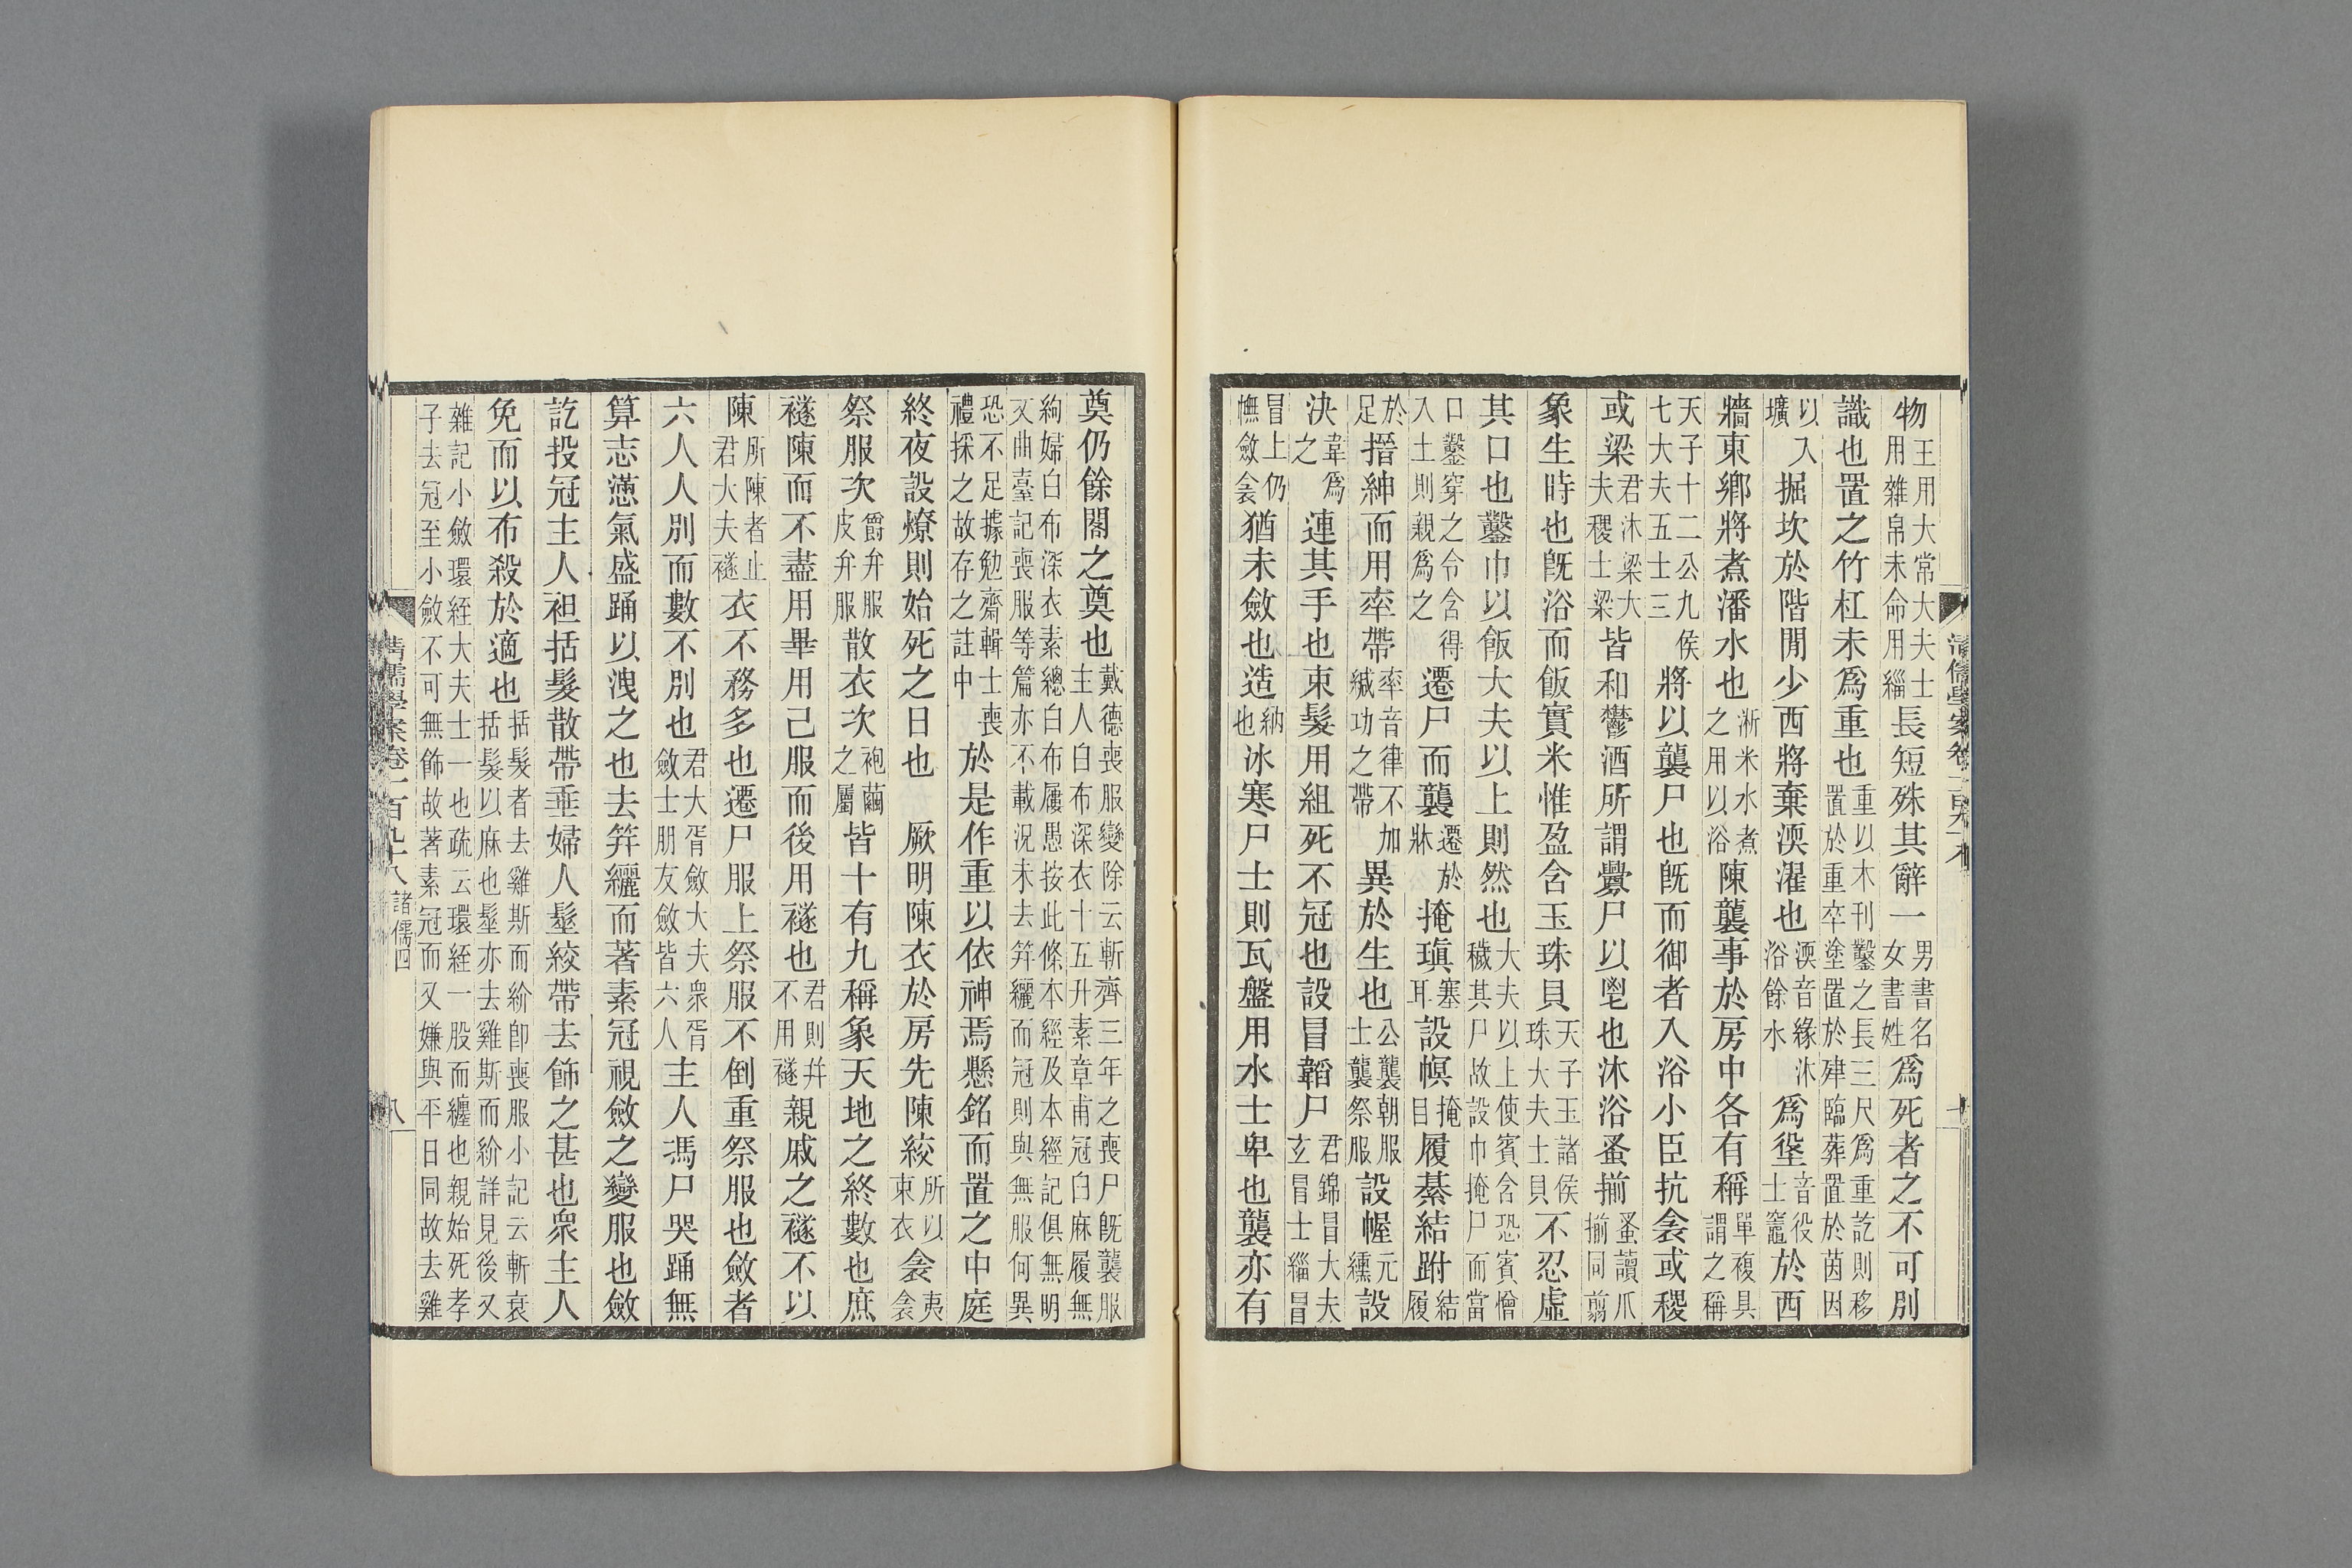 物王用大常大夫士用雜帛未命用緇長短殊其辭一男書名女書姓爲死者之不可別
識也置之竹杠未爲重也重以木刊鑿之長三尺爲重訖則移置於重卒塗置於肂臨葬置於茵因
以入壙掘坎於階閒少西將棄渜濯也渜音緣沐浴餘水爲垼音役士竈於西
牆東鄉將煮潘水也淅米水煮之用以浴陳襲事於房中各有稱單複具謂之稱
天子十二公九侯七大夫五士三將以襲尸也旣而御者入浴小臣抗衾或稷
或梁君沐梁大夫稷士梁皆和鬱酒所謂釁尸以鬯也沐浴蚤揃蚤讀爪揃同翦
象生時也旣浴而飯實米惟盈含玉珠貝天子玉諸侯珠大夫士貝不忍虛
其口也鑿巾以飯大夫以上則然也大夫以上使賓含恐賓憎穢其尸故設巾掩尸而當
口鑿穿之令含得入士則親爲之遷尸而襲遷於牀掩瑱塞耳設幎掩目履綦結跗結履
於足搢紳而用率帶率音律不加緘功之帶異於生也公襲朝服士襲祭服設幄元纁設
決韋爲之連其手也束髮用組死不冠也設冒韜尸君錦冒大夫玄冒士緇冒
冒上仍憮斂衾猶未斂也造納也冰寒尸士則瓦盤用水士卑也襲亦有
奠仍餘閣之奠也戴德喪服變除云斬齊三年之喪尸旣襲服主人自布深衣十五升素章甫冠白麻履無
絇婦白布深衣素總白布屨愚按此條本經及本經記俱無明文曲臺記喪服等篇亦不載況未去笄纚而冠則與無服何異
恐不足據勉齋輯士喪禮採之故存之註中於是作重以依神焉懸銘而置之中庭
終夜設燎則始死之日也 厥明陳衣於房先陳絞所以束衣衾夷衾
祭服次爵弁服皮弁服散衣次袍繭之屬皆十有九稱象天地之終數也庶
襚陳而不盡用畢用己服而後用襚也君則幷不用襚親戚之襚不以
陳所陳者止君大夫襚衣不務多也遷尸服上祭服不倒重祭服也斂者
六人人別而數不別也君大胥斂大夫衆胥斂士朋友斂皆六人主人馮尸哭踊無
算志懣氣盛踊以洩之也去笄纚而著素冠視斂之變服也斂
訖投冠主人袒括髮散帶垂婦人髽絞帶去飾之甚也衆主人
免而以布殺於適也括髮者去雞斯而紒卽喪服小記云斬衰括髮以麻也髽亦去雞斯而紒詳見後又
雜記小斂環絰大夫士一也疏云環絰一股而纏也親始死孝子去冠至小斂不可無飾故著素冠而又嫌與平日同故去雞
清儒學案卷一百九十八 諸儒四
八